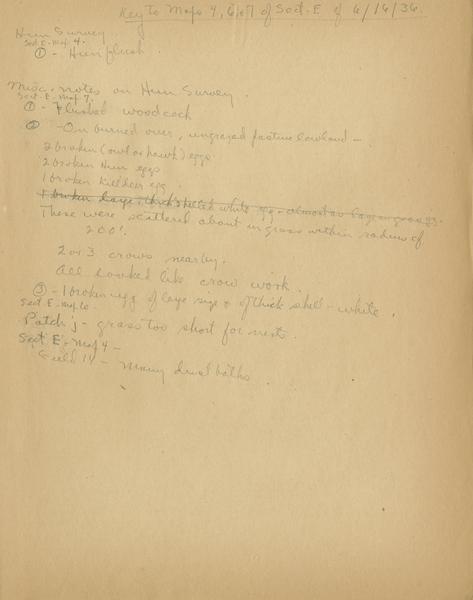 Key to Maps 4, 6, & 7 of Sect. E of 6/16/36.
Hun Survey.
Sect. E - Map 4.
① - Hun flush.
Misc. notes on Hun Survey.
Sect. E - Map 7.
① - Flushed woodcock
② - On burned over, ungrazed pasture lowland -
2 broken (owl or hawk) eggs
2 broken Hun eggs
1 broken killdeer egg
1 broken large, thick shelled white egg - almost as large as goose egg.
These were scattered about in grass within radius of
200'.
2 or 3 crows nearby.
All looked like crow work.
③ - 1 broken egg of large size & of thick shell - white.
Sect. E - Map 6.
Patch j - grass too short for nests.
Sect E - Map 4 -
Field 11 - Many dust baths.